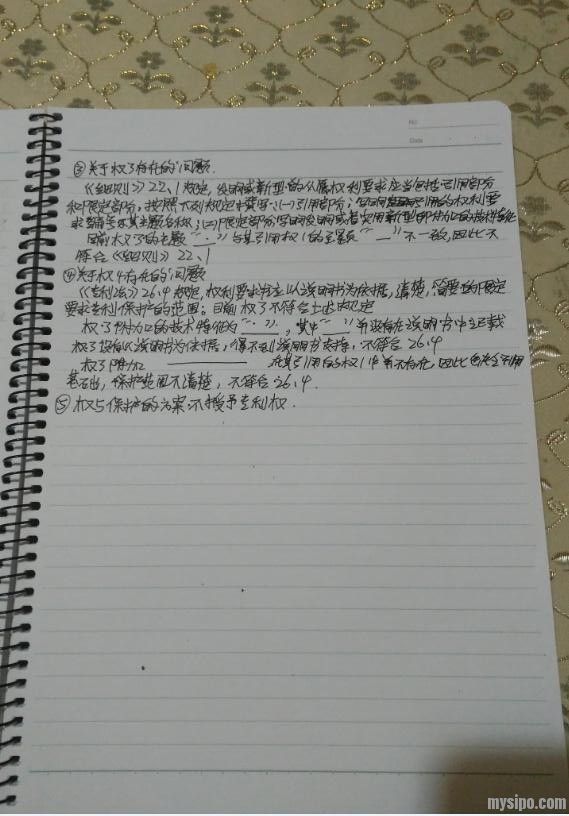 No
Date
③关于权3存在的问题.
《细则》22.1规定,发明或新型的从属权利要求应当包括引用部分
和限定部分,按照下列规定撰写:(一)引用部分:写明引用的权利要
求编号及其主题名称;(二)限定部分:写明发明或者实用新型附加的技术特征
目前权3的主题“ . ”与其引用权1的主题“ — ”不一致,因此不
符合《细则》22.1
④关于权4存在的问题
《专利法》26.4规定,权利要求书应以说明书为依据,清楚,简要的限定
要求专利保护的范围;目前权3不符合上述规定
权3附加的技术特征的“ . ”,其中“ ”并没有在说明书中记载
权3没有以说明书为依据,得不到说明书支持,不符合26.4
权3附加 在其引用的权1中并不存在,因此缺乏引用
基础,保护范围不清楚,不符合26.4.
⑤权5保护的方案不授予专利权.
mysipo.com